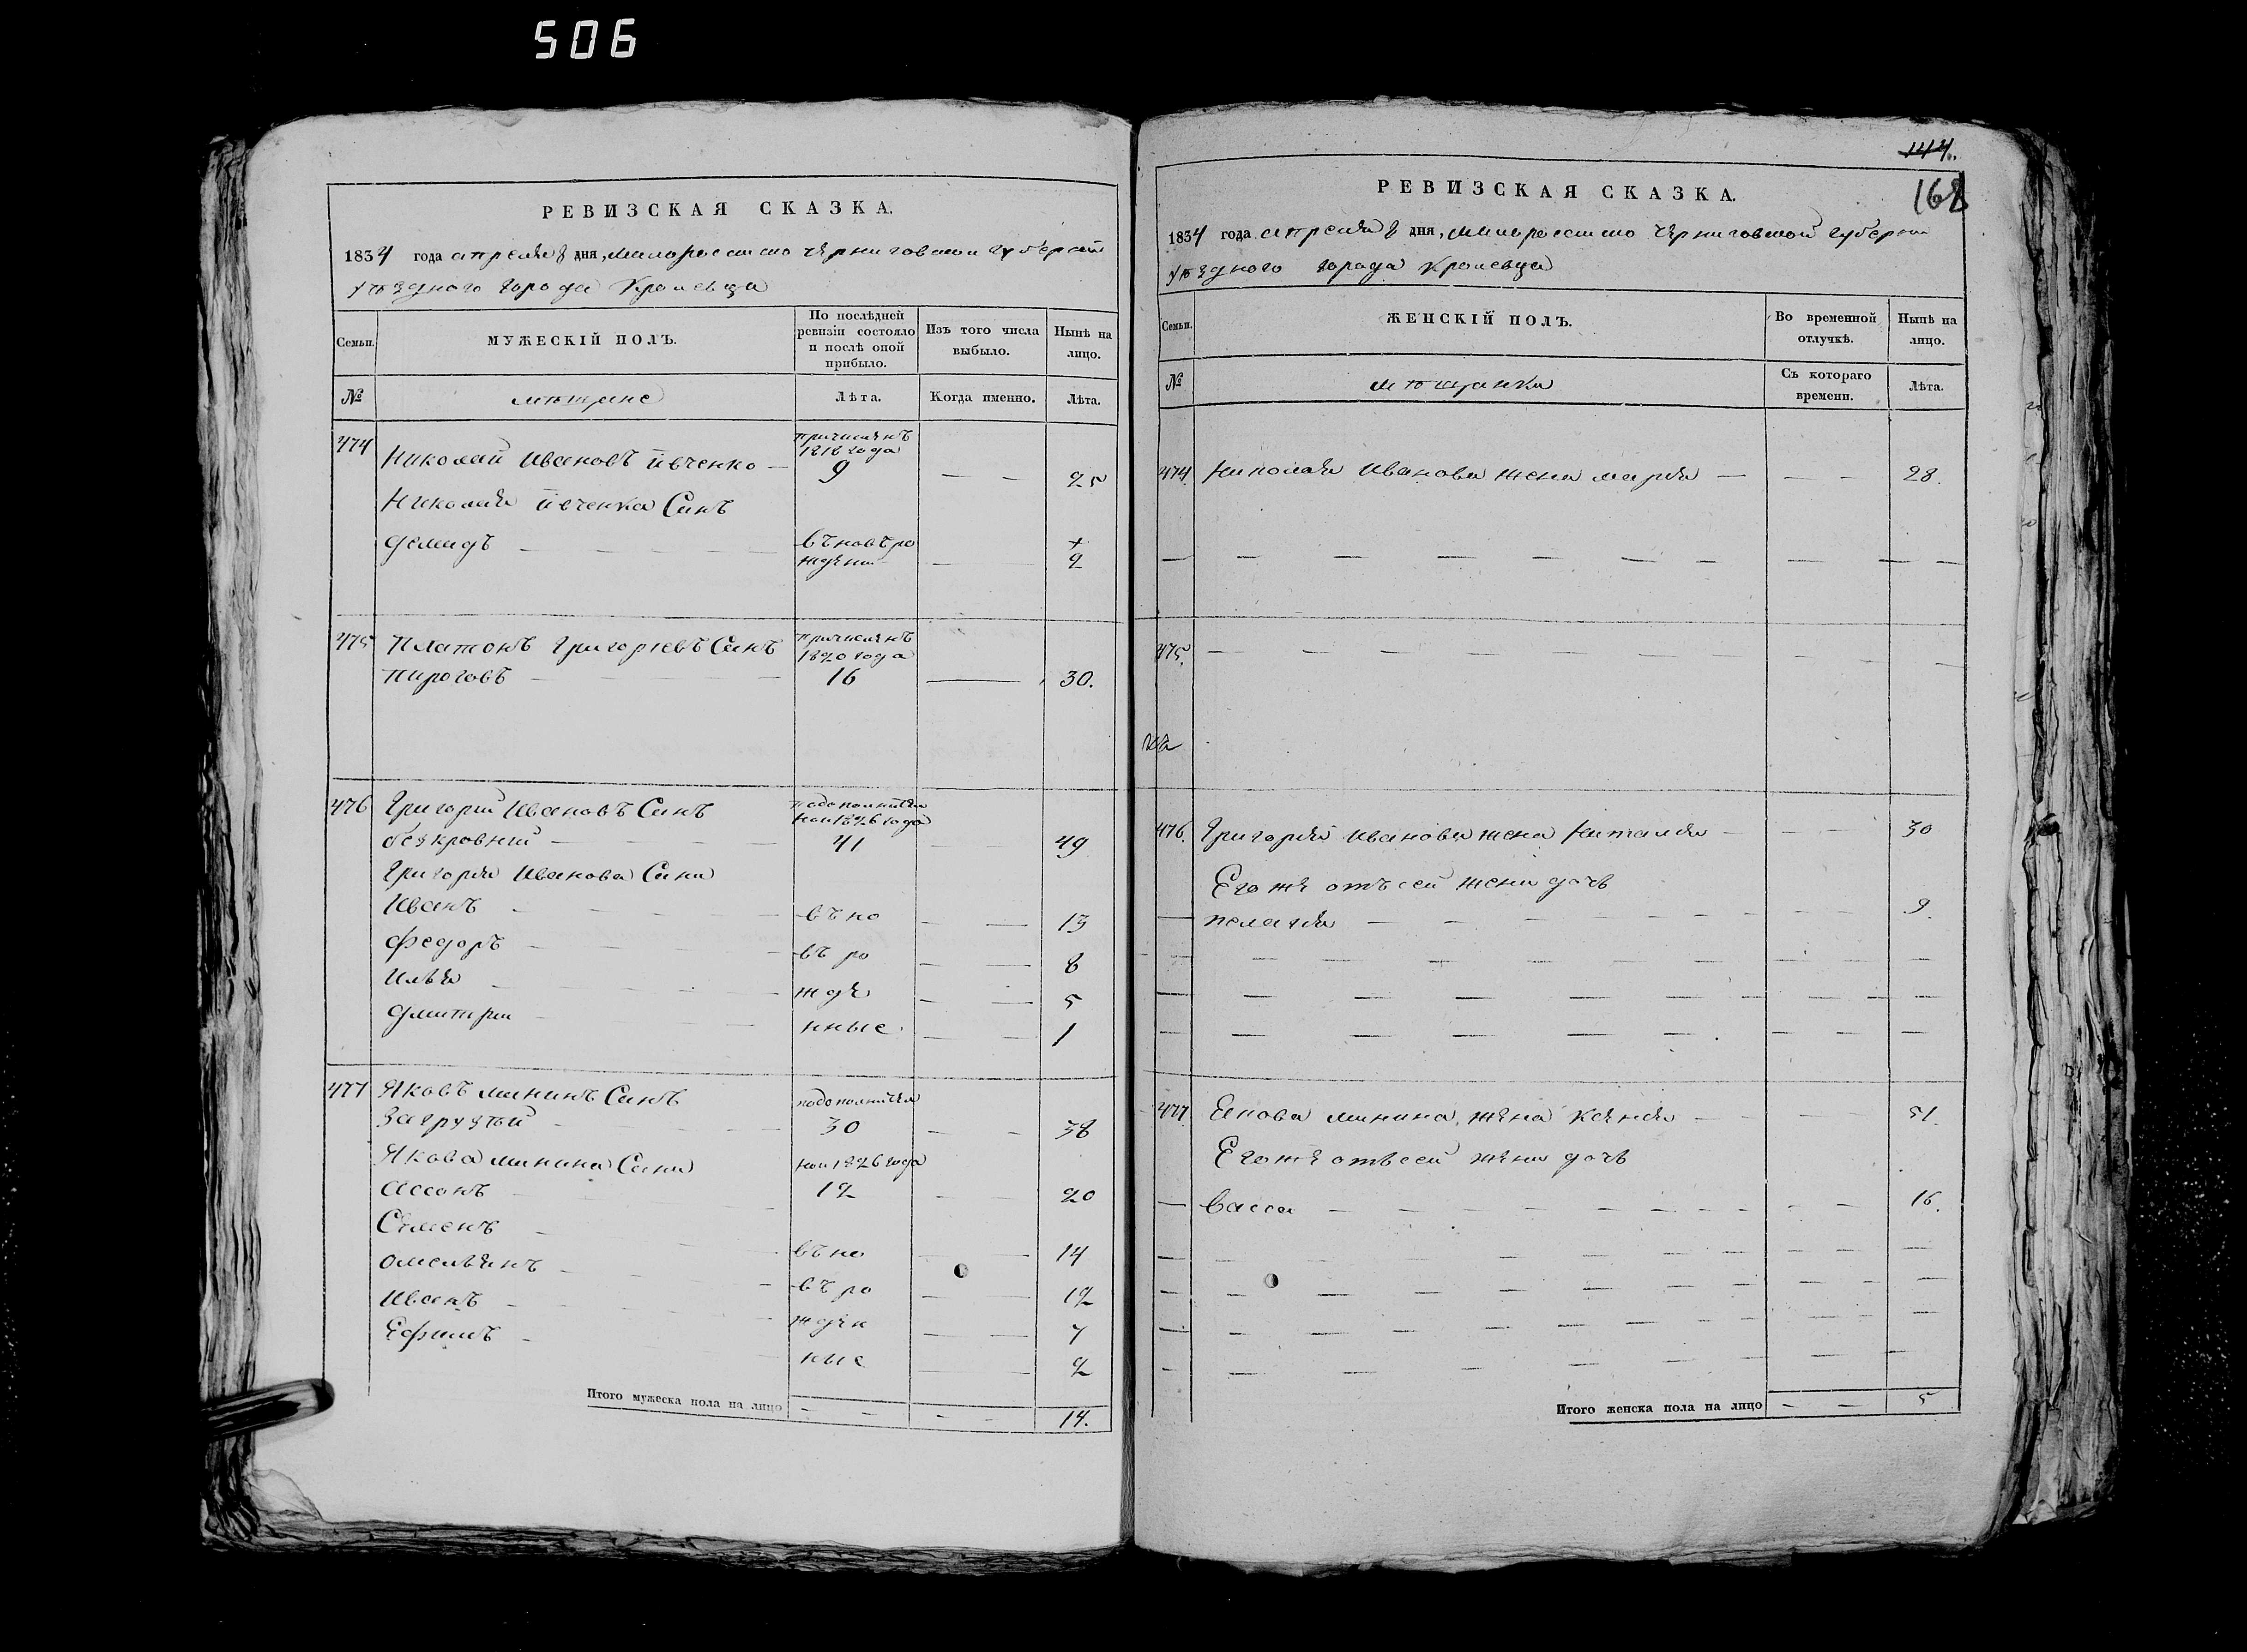 506
РЕВИЗСКАЯ СКАЗКА.
1834 года апреля 8 дня, малороссиско черниговской губерний
уѣздного города Кролевца
Семьи.
МУЖЕСКІЙ ПОЛЪ.
По послѣдней ревизіи состояло и послѣ оной прибыло.
Изъ того числа выбыло.
Нынѣ на лицо.
№
мѣщане
Лѣта.
Когда именно.
Лѣта.
474
причислѣнъ
1818 года
Николай Ивановъ Ивченко — 9 — — 25
Николая Ивченка Синъ
Демидъ — въновъро + 
ждѣни — 2
475 Платонъ Григорievъ Синъ причислѣнъ
1820 года
Пироговъ — 16 — 30.
476 Григорий Ивановъ Синъподополнитѣл
ной 1826 года
безкровний — 41 — 49
Григория Иванова Сини
Иванъ — въно — 13
Федоръ — въ ро — 8
Илья — ждѣ — 5
Дмитри — нные — 1
477 Яковъ мининъ Синъ подополнитѣл
Загрузтой — 30 — — 38
Якова минина Сини ной 1826 года
Ассонъ — 12 — 20
Сѣменъ — въно — 14
Омельянъ — въ ро — 12
Иванъ — ждѣн — 7
Ефимъ — ные — 2
Итого мужеска пола на лицо — — — — 14.
144.
168
РЕВИЗСКАЯ СКАЗКА.
1834 года апреля 8 дня, малороссиско черниговской губернии
уѣздного города Кролевца
Семьи.
ЖЕНСКІЙ ПОЛЪ.
Во временной отлучкѣ.
Нынѣ на лицо.
№
мѣщанки
Съ котораго времени.
Лѣта.
474. Николая Иванова жена мария — — — 28.
475.
476. Григория Иванова жена Наталия — 30
Его жѣ отъсей жени дочь
— пелагия — 9.
477. Екова минина, жѣна Ксѣния — 51.
Егожѣ отъсей жѣни дочь
— Васса — 16.
Итого женска пола на лицо — — 5